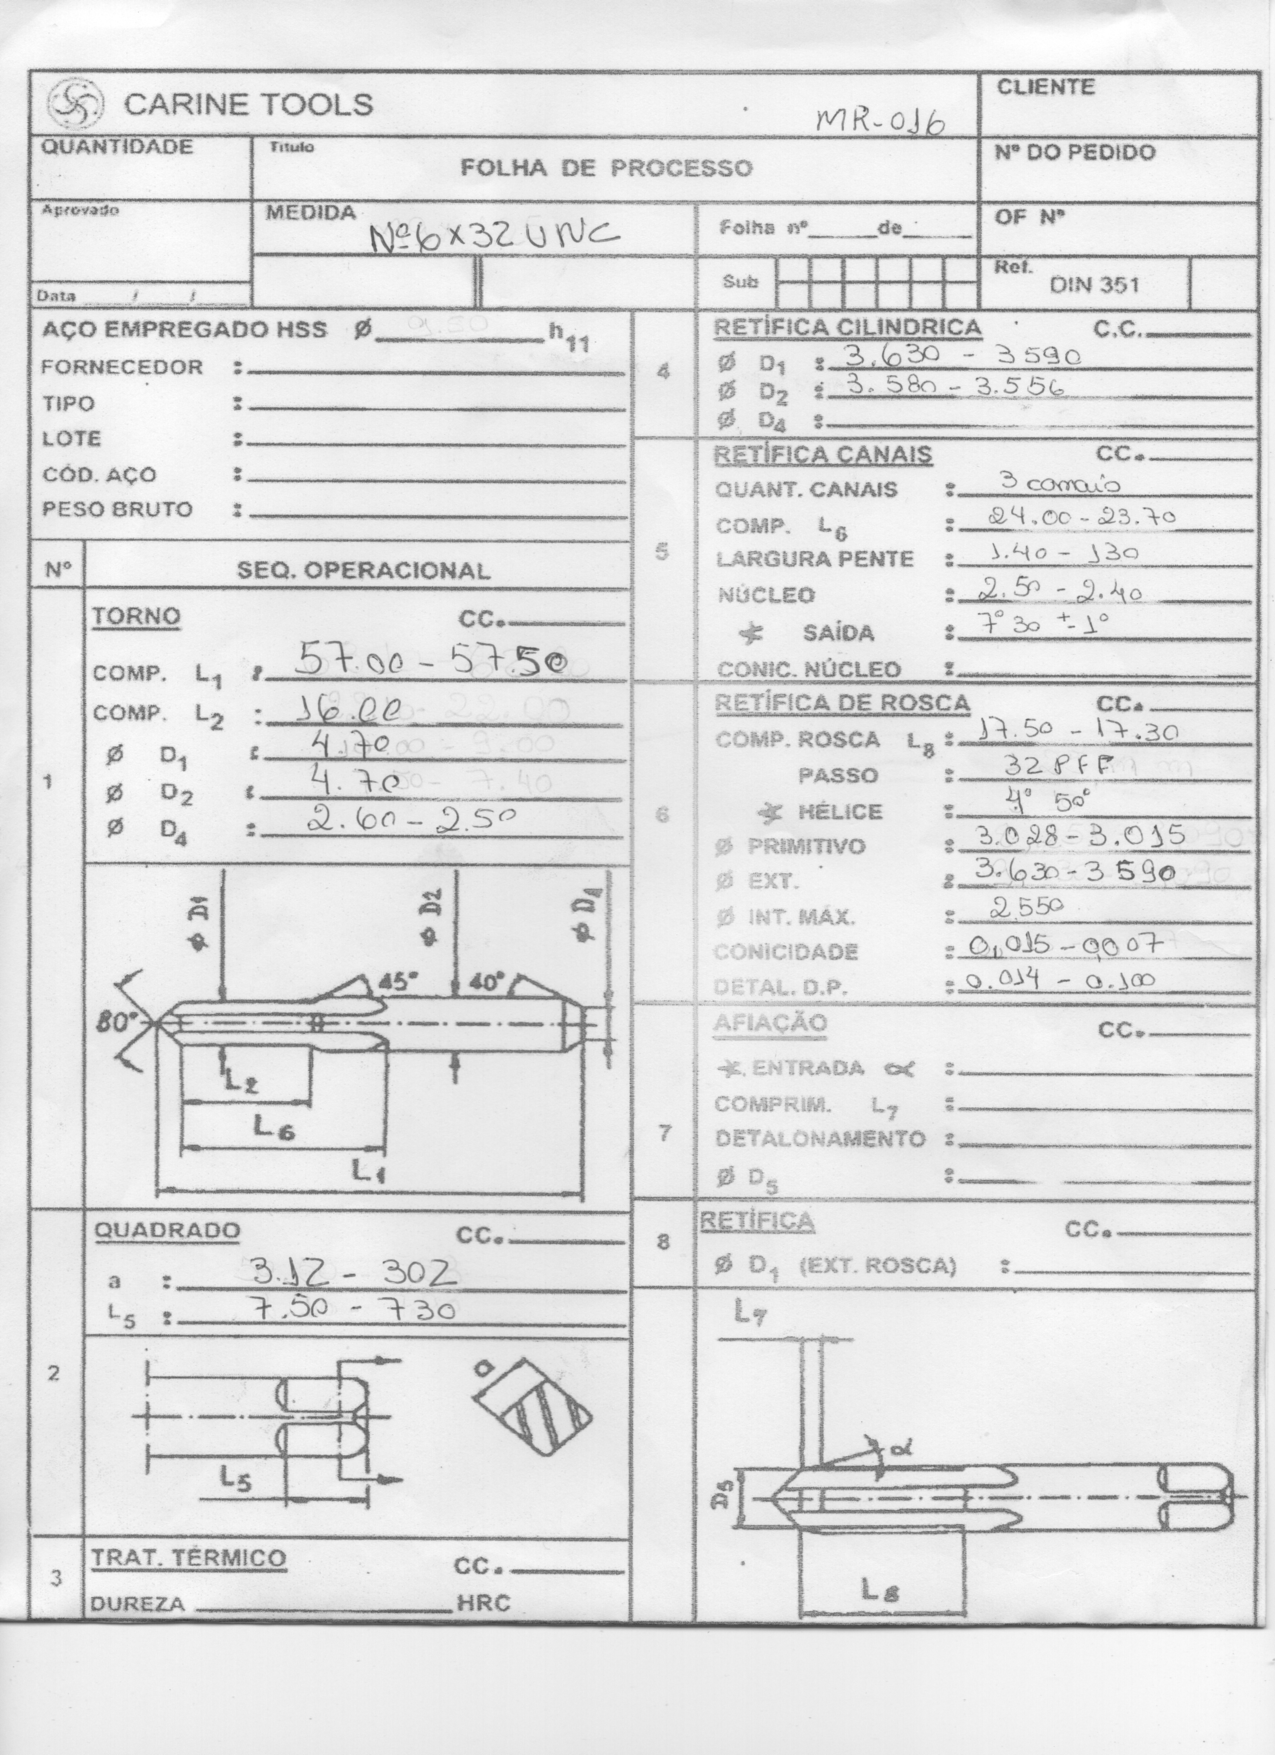 CARINE TOOLS
MR-016
CLIENTE
QUANTIDADE
Titulo
FOLHA DE PROCESSO
Nº DO PEDIDO
Aprovado
MEDIDA
Nº6x32 UNC
Folha nº____de____
OF Nº
Data __/__/__
Sub
Ref.
DIN 351
AÇO EMPREGADO HSS Ø______h11
FORNECEDOR :
TIPO :
LOTE :
CÓD. AÇO :
PESO BRUTO :
Nº SEQ. OPERACIONAL
1
TORNO CC.
COMP. L1 : 57.00 - 57.50
COMP. L2 : 16.00
Ø D1 : 4.70
Ø D2 : 4.70
Ø D4 : 2.60 - 2.50
Ø D1
Ø D2
Ø D4
45°
40°
80°
L2
L6
L1
2
QUADRADO CC.
a : 3.12 - 302
L5 : 7.50 - 730
a
L5
3
TRAT. TÉRMICO CC.
DUREZA ______HRC
4
RETÍFICA CILINDRICA C.C.
Ø D1 : 3.630 - 3590
Ø D2 : 3.580 - 3.556
Ø D4 :
5
RETÍFICA CANAIS CC.
QUANT. CANAIS : 3 canais
COMP. L6 : 24.00 - 23.70
LARGURA PENTE : 1.40 - 130
NÚCLEO : 2.50 - 2.40
SAÍDA : 7° 30 +- 1°
CONIC. NÚCLEO :
6
RETÍFICA DE ROSCA CC.
COMP. ROSCA L8 : 17.50 - 17.30
PASSO : 32 PFF
HÉLICE : 4° 50°
Ø PRIMITIVO : 3.028 - 3.015
Ø EXT. : 3.630 - 3590
Ø INT. MÁX. : 2550
CONICIDADE : 0,015 - 0007
DETAL. D.P. : 0.014 - 0.100
7
AFIAÇÃO CC.
ENTRADA α :
COMPRIM. L7 :
DETALONAMENTO :
Ø D5 :
8
RETÍFICA CC.
Ø D1 (EXT. ROSCA) :
L7
α
D5
L8